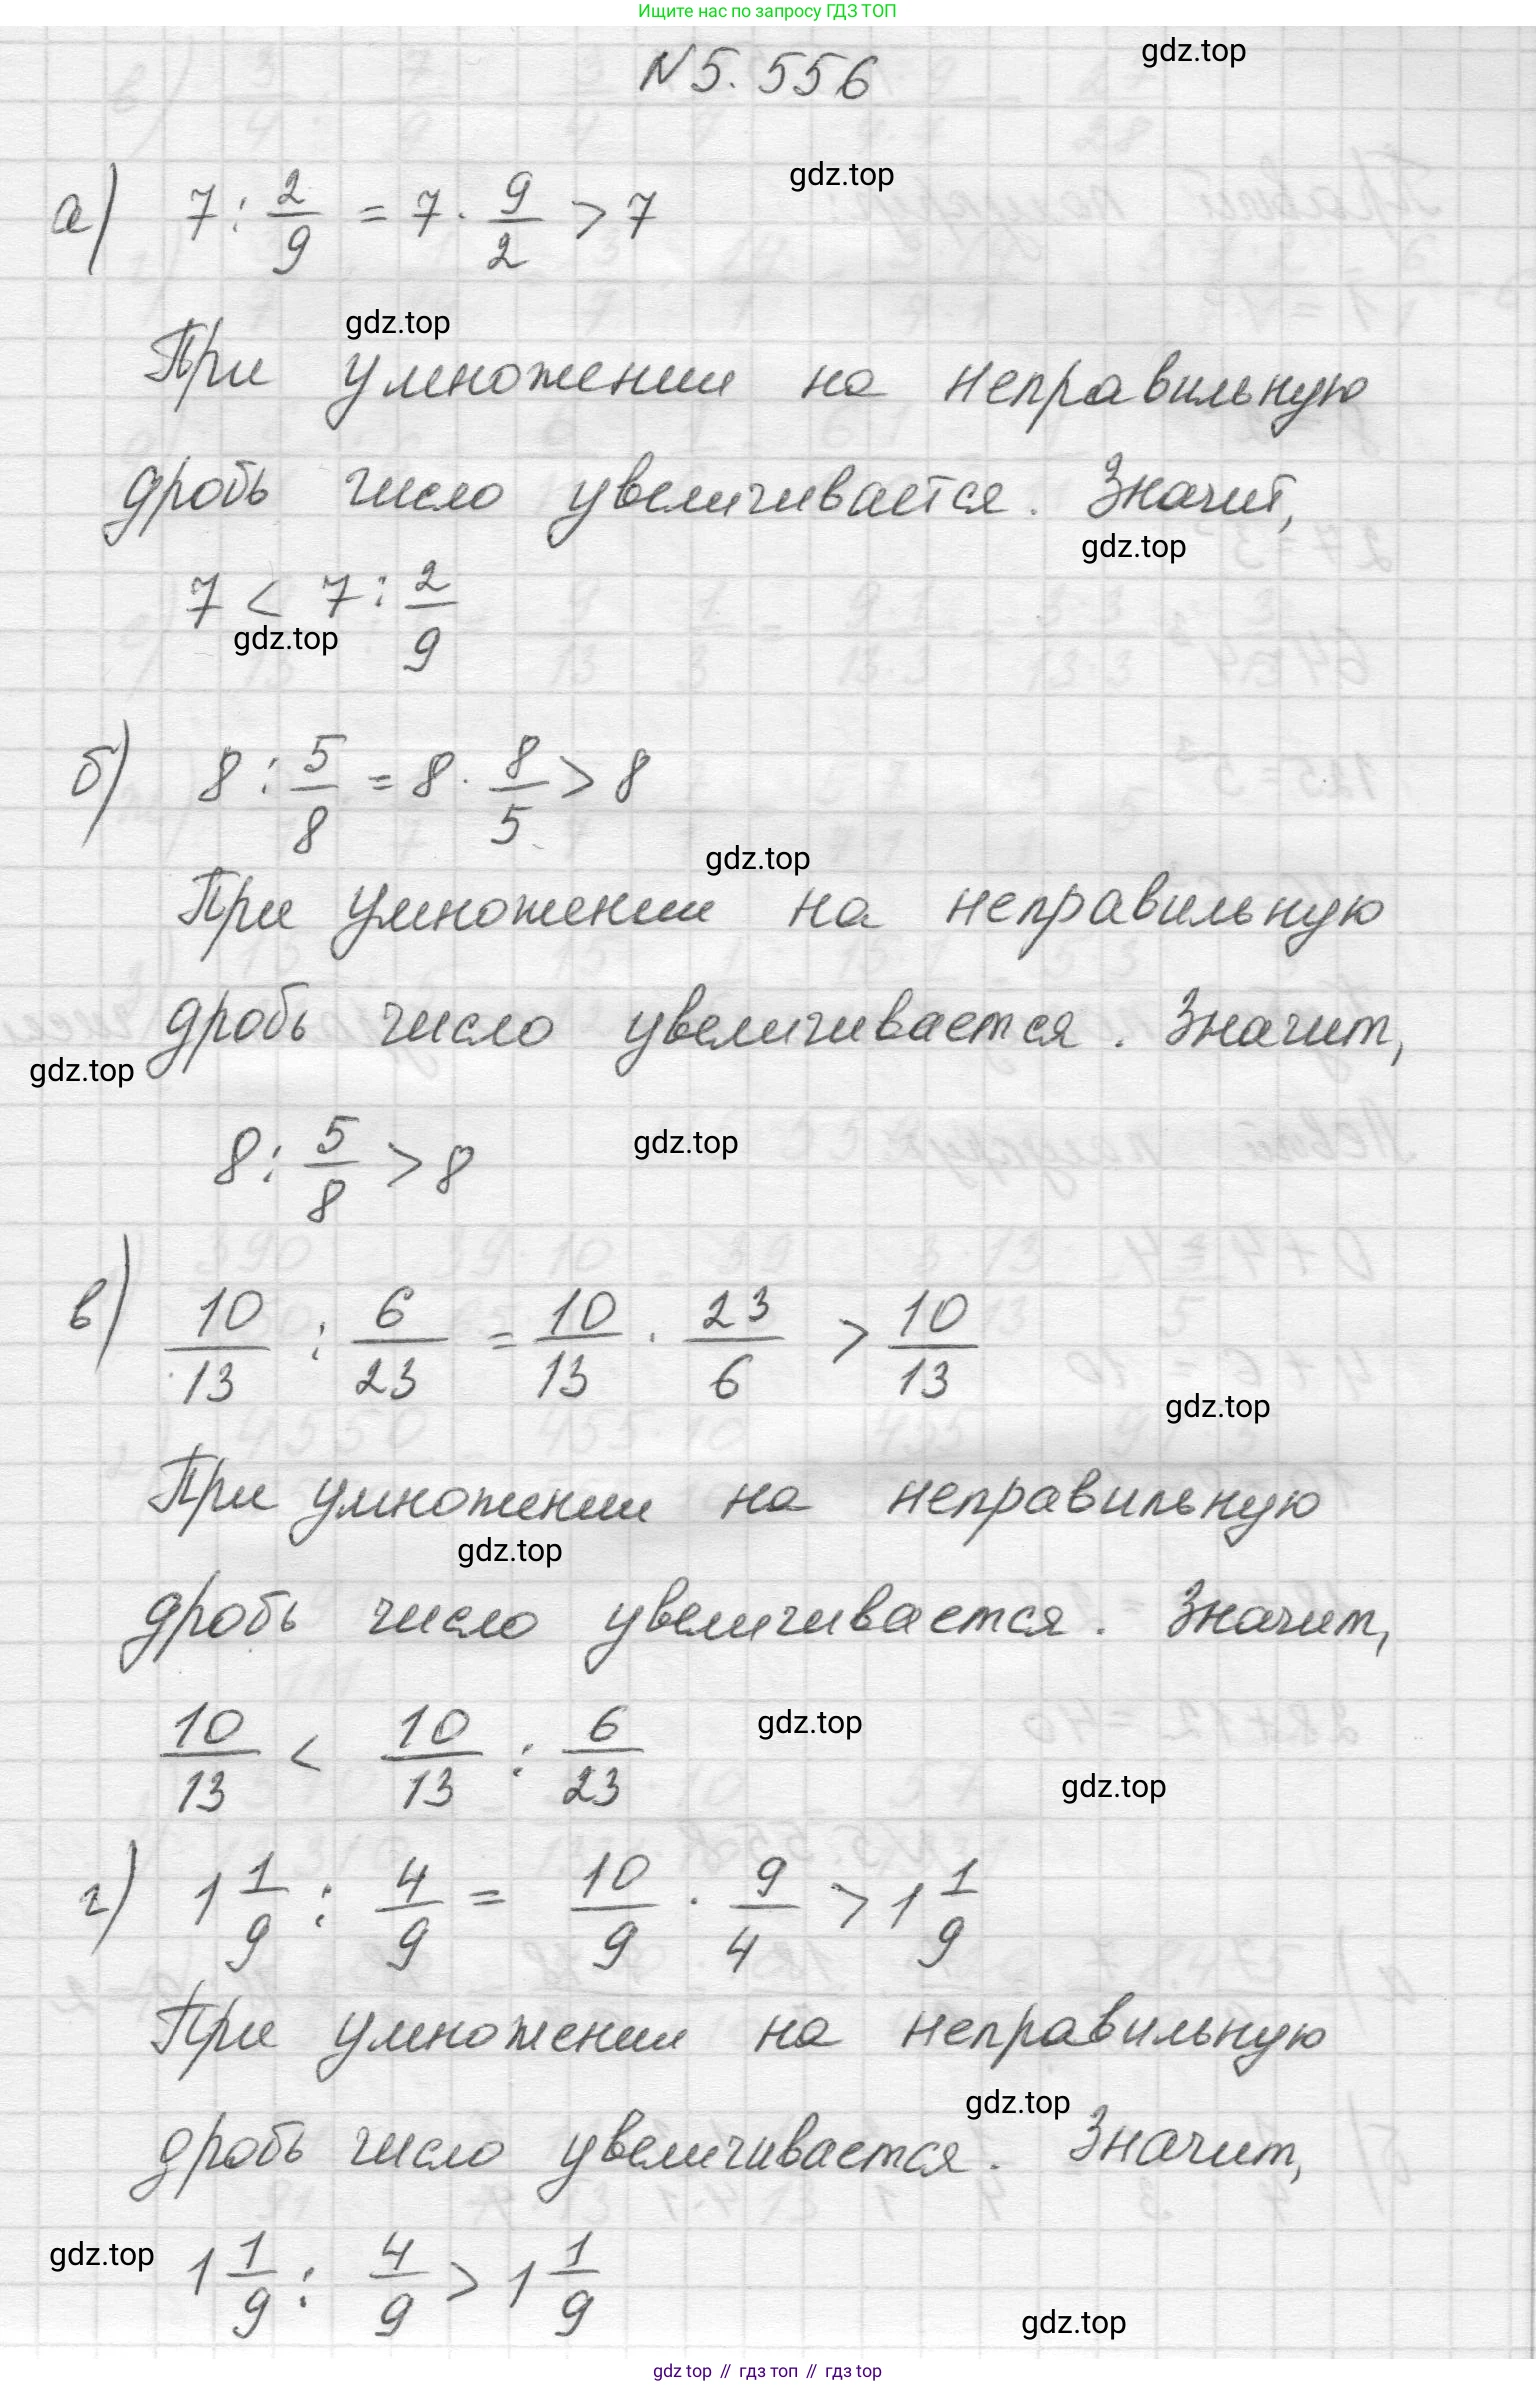 Ищите нас по запросу ГДЗ ТОП
N 5. 556
gdz.top
gdz.top
а) 7 : 2/9 = 7 · 9/2 > 7
gdz.top
При умножении на неправильную
дробь число увеличивается. Значит,
gdz.top
7 < 7 : 2/9
gdz.top
б) 8 : 5/8 = 8 · 8/5 > 8
gdz.top
При умножении на неправильную
дробь число увеличивается. Значит,
gdz.top
8 : 5/8 > 8
gdz.top
в) 10/13 : 6/23 = 10/13 · 23/6 > 10/13
gdz.top
При умножении на неправильную
gdz.top
дробь число увеличивается. Значит,
10/13 < 10/13 : 6/23
gdz.top
gdz.top
г) 1 1/9 : 4/9 = 10/9 · 9/4 > 1 1/9
При умножении на неправильную
gdz.top
дробь число увеличивается. Значит,
gdz.top
1 1/9 : 4/9 > 1 1/9
gdz.top
gdz top // гдз топ // гдз top